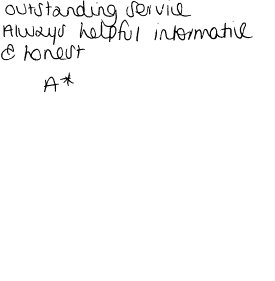 outstanding service
Always helpful informative
& honest
A*